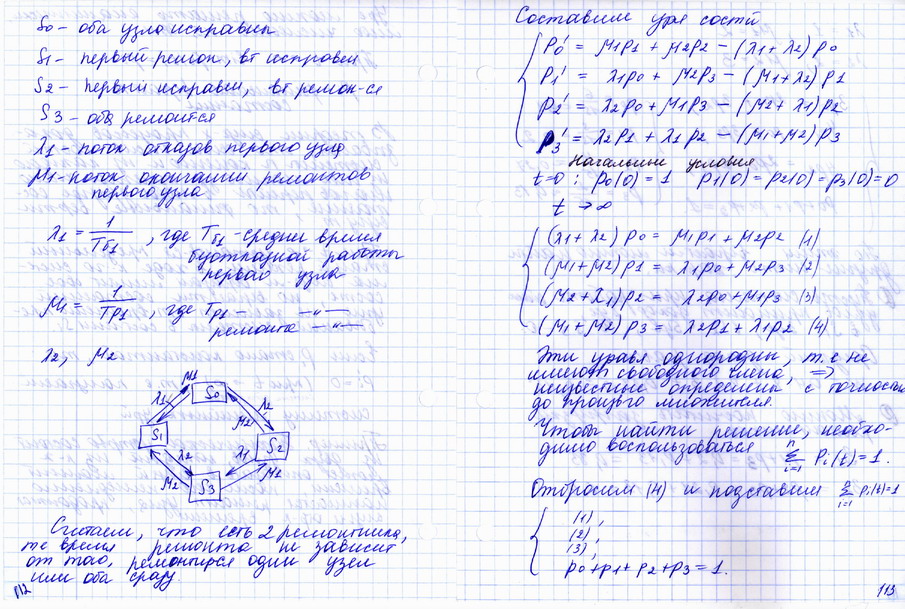 S0 – оба узла исправны
S1 – первый ремон, вт исправен
S2 – первый исправен, вт ремон-ся
S3 – оба ремонтся
λ1 – поток отказов первого узла
μ1 – поток окончаний ремонтов
первого узла
λ1 = 1/Tб1 , где Tб1 – среднее время
безотказной работы
первого узла
μ1 = 1/Tp1 , где Tp1 – –"–
ремонта –"–
λ2, μ2
μ1
S0
λ1
λ2
μ2
S1
S2
λ2
λ1
μ2
S3
μ1
Считаем, что есть 2 ремонтника,
те время ремонта не зависит
от того, ремонтирся один узел
или оба сразу.
112
Составим уря состй
P0' = μ1p1 + μ2p2 – (λ1+λ2) p0
P1' = λ1p0 + μ2p3 – (μ1+λ2) p1
P2' = λ2p0 + μ1p3 – (μ2+λ1) p2
P3' = λ2p1 + λ1p2 – (μ1+μ2) p3
Начальные условия
t=0 : p0(0) = 1 p1(0) = p2(0) = p3(0) = 0
t → ∞
(λ1+λ2) p0 = μ1p1 + μ2p2 (1)
(μ1+μ2) p1 = λ1p0 + μ2p3 (2)
(μ2+λ1) p2 = λ2p0 + μ1p3 (3)
(μ1+μ2) p3 = λ2p1 + λ1p2 (4)
Эти уравя однородны, т.е не
имеют свободного члена, ⇒
неизвестные определены с точностью
до произвго множителя.
Чтобы найти решение, необхо-
димо воспользоваться n Σ i=1 Pi(t) = 1.
Отбросим (4) и подставим n Σ i=1 pi(t)=1
(1),
(2),
(3),
p0+p1+p2+p3 = 1.
113